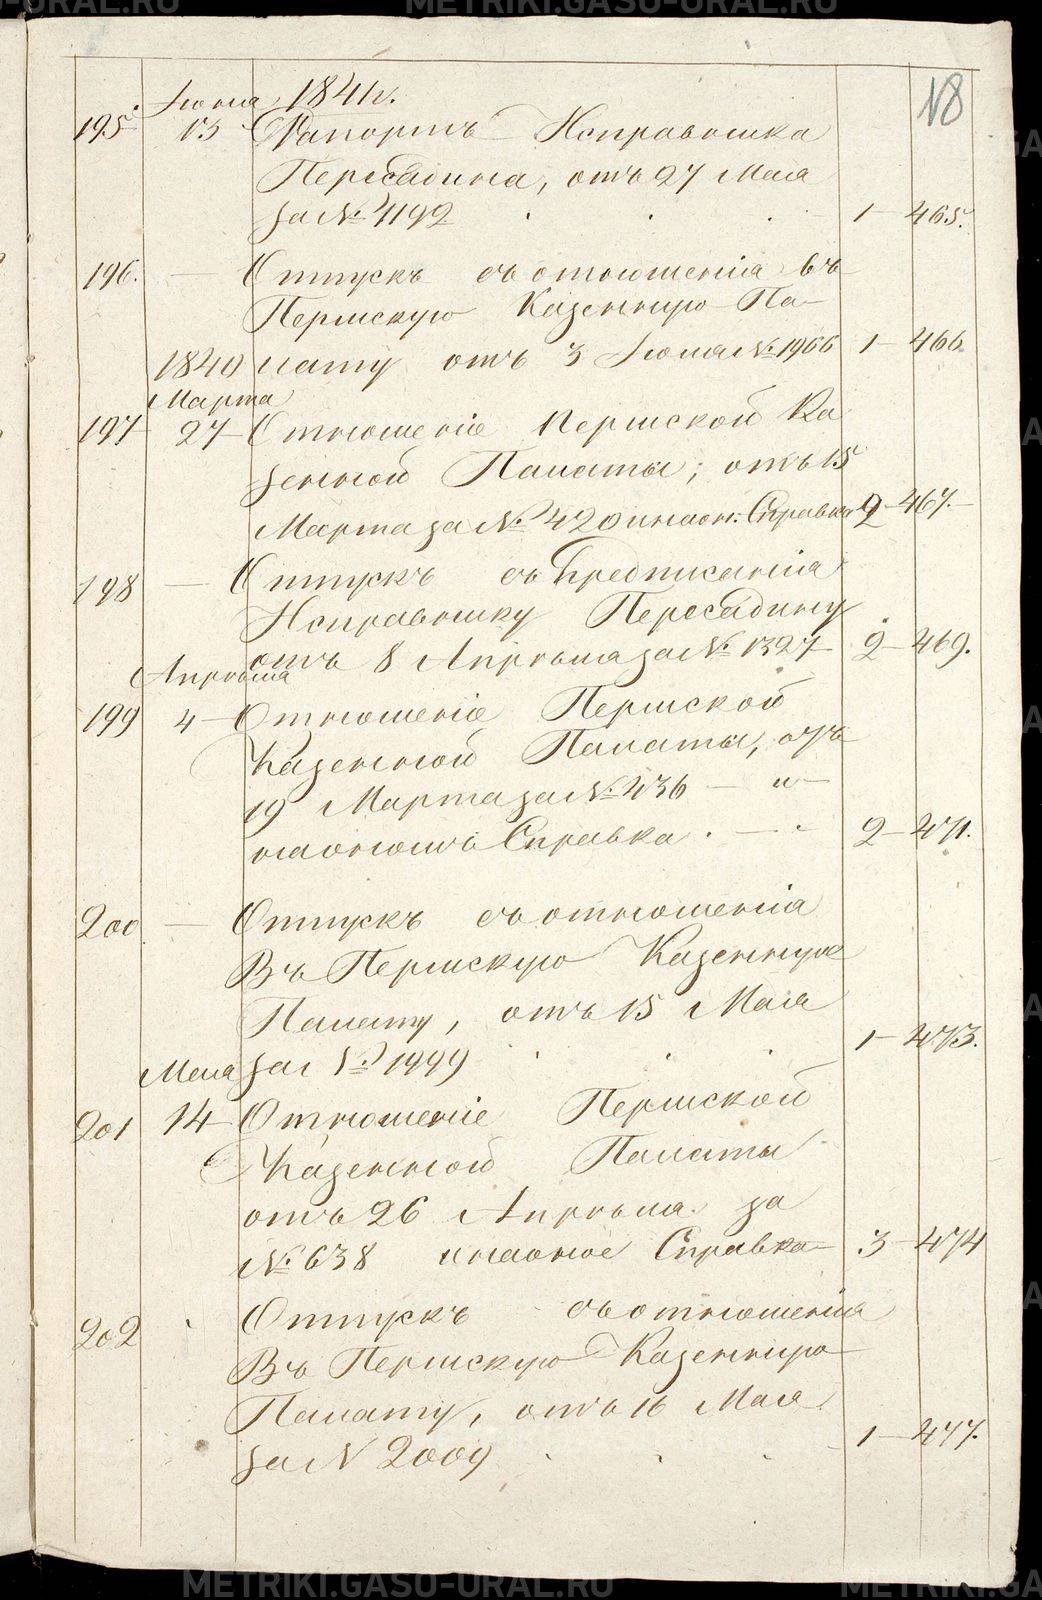 METRIKI.GASU-URAL.RU
18
Июня 1841 г.
195. 13 Рапортъ Исправника
Пересадина, отъ 27 Мая
за № 1192 1 — 465.
196. — Отпускъ съ отношенія въ
Пермскую Казенную Па-
1840 лату отъ 3 Июня № 1966 1 — 466
Марта
197 27 — Отношеніе Пермской Ка
зенной Палаты; отъ 15
Марта за № 420 и на он: Справка 2 — 467. —
198 — Отпускъ съ Предписанія
Исправнику Пересадину
отъ 8 Апрѣля за № 1327 2 — 469.
Апрѣля
199 4 — Отношеніе Пермской
Казенной Палаты, отъ
19 Марта за № 436 — и —
на ономъ Справка. — . 2 — 471.
200 — Отпускъ съ отношенія
Въ Пермскую Казенную
Палату, отъ 15 Мая
1 — 473.
Мая за № 1999
201 14 — Отношеніе Пермской
Казенной Палаты
отъ 26 Апрѣля за
№ 638 и на оное Справка — 3 — 474
202 Отпускъ съ отношенія
Въ Пермскую Казенную
Палату, отъ 16 Мая
за № 2009 1 — 477.
METRIKI.GASU-URAL.RU